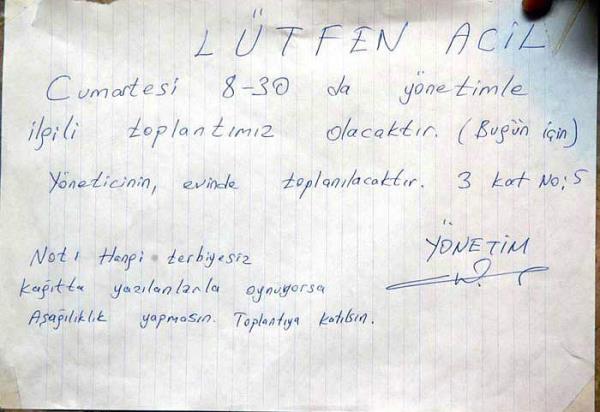 LÜTFEN ACİL
Cumartesi 8-30 da yönetimle
ilgili toplantımız olacaktır. (Bugün için)
Yöneticinin, evinde toplanılacaktır. 3 kat No; 5
YÖNETİM
Not: Hangi terbiyesiz
kağıtta yazılanlarla oynuyorsa
Aşağılıklık yapmasın. Toplantıya katılsın.